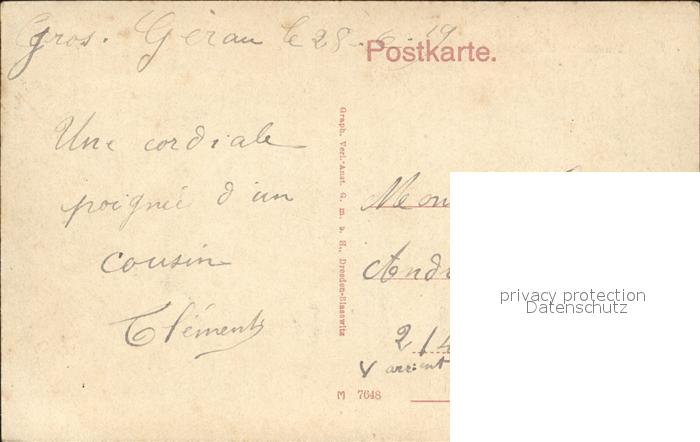 Gros. Gérau le 28.6.19
Postkarte.
Une cordiale
poignée d'un
cousin
Clément
Graph. Verl.-Anst. G. m. b. H., Dresden-Blasewitz
Mon
Andr
214
privacy protection
Datenschutz
M 7648